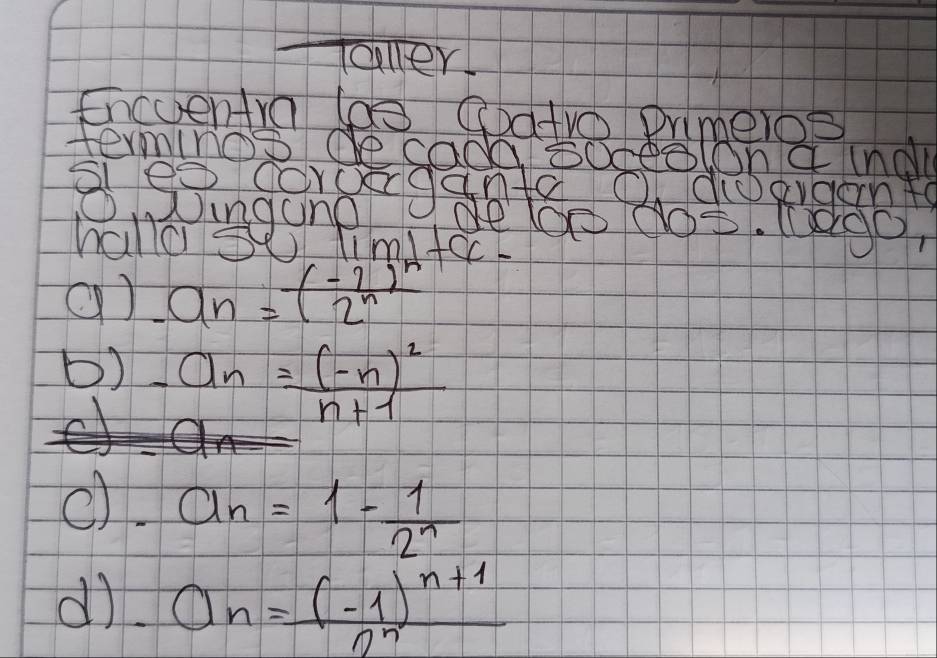 Taller.
Encuentra las Cuatro Primeros
terminos de cada sucesion e indi
si es convergente o divergente
o Ninguna de las dos. luego,
halla su limite.
a) - an = (-2)^n / 2^n
b) - an = (-n)^2 / n+1
c) - an
c) - an = 1 - 1/2^n
d) - an = (-1)^n+1 / 2^n